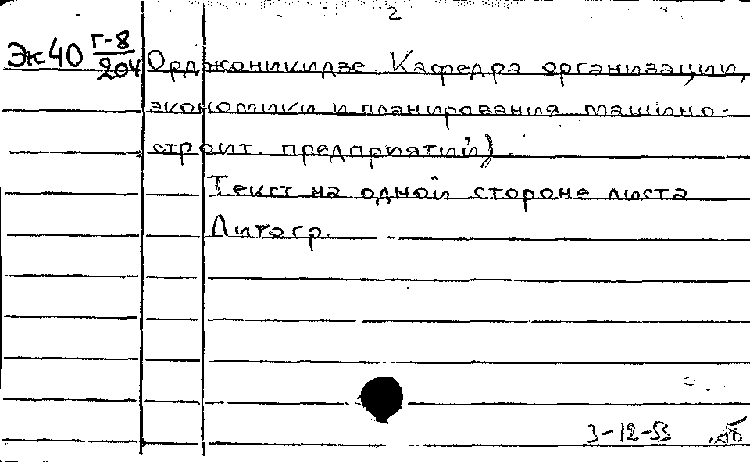 2
Эк40 Г-8/204 Орджоникидзе. Кафедра организации,
экономики и планирования машино-
строит. предприятий).
Текст на одной стороне листа
Литогр.
3-12-53